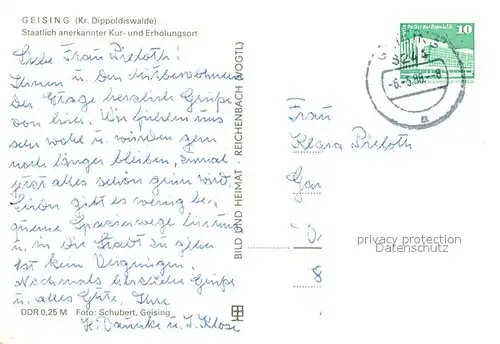 GEISING (Kr. Dippoldiswalde)
Staatlich anerkannter Kur- und Erholungsort
Liebe Frau Pieloth!
Ihnen u. den Mitbewohnern
der Etage herzlich Grüße
von hier. Wir fühlen uns
sehr wohl u. würden gern
noch länger bleiben, zumal
jetzt alles schön grün wird.
Leider gibt es wenig be-
queme Spazierwege hier
u. in die Stadt zu gehen
ist kein Vergnügen.
Nochmals herzliche Grüße
u. alles Gute, Ihre
u. I. Klose
DDR 0,25 M Foto: Schubert, Geising
BILD UND HEIMAT · REICHENBACH (VOGTL)
10
Frau
Klara Pieloth
Gar
8
privacy protection
Datenschutz